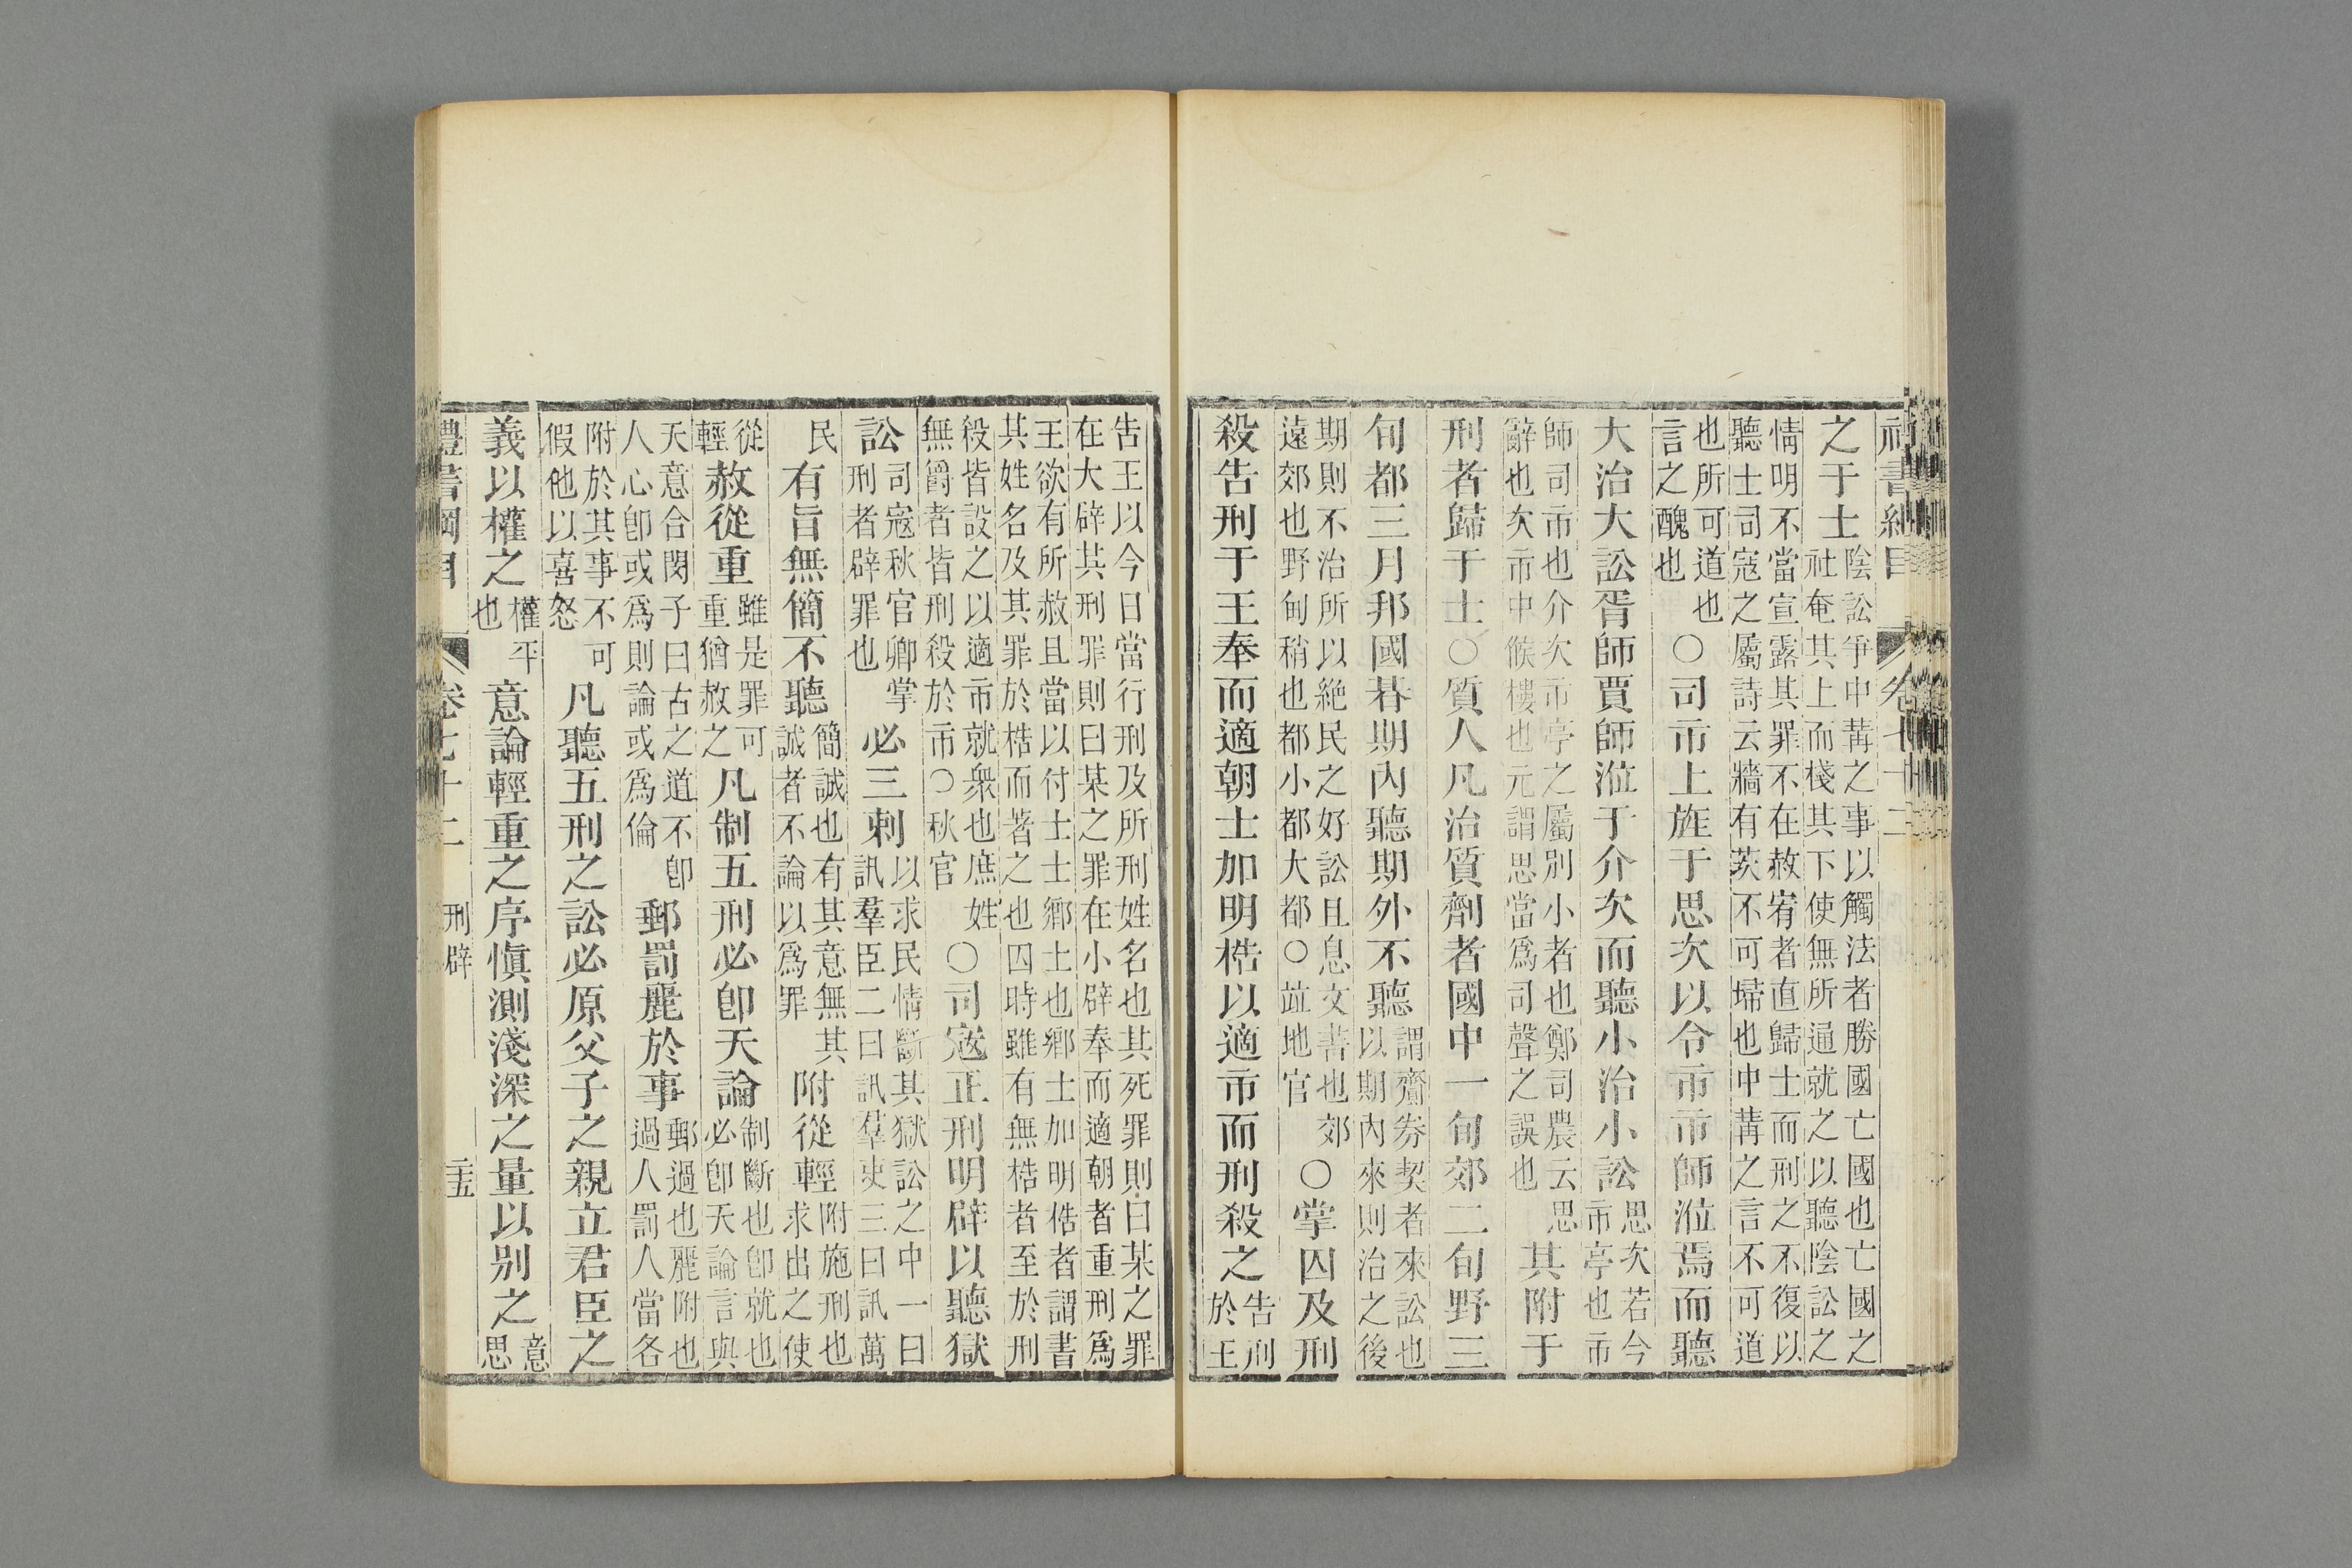 禮書綱目 卷七十二
之于士陰訟爭中冓之事以觸法者勝國亡國也亡國之
社奄其上而棧其下使無所通就之以聽陰訟之
情明不當宣露其罪不在赦宥者直歸士而刑之不復以
聽士司寇之屬詩云牆有茨不可埽也中冓之言不可道
也所可道也
言之醜也
○司市上旌于思次以令市市師涖焉而聽
大治大訟胥師賈師涖于介次而聽小治小訟思次若今
市亭也市
師司市也介次市亭之屬別小者也鄭司農云思
辭也次市中候樓也元謂思當爲司聲之誤也
其附于
刑者歸于士○質人凡治質劑者國中一旬郊二旬野三
旬都三月邦國朞期內聽期外不聽謂齎券契者來訟也
以期內來則治之後
期則不治所以絶民之好訟且息文書也郊
遠郊也野甸稍也都小都大都○竝地官
○掌囚及刑
殺告刑于王奉而適朝士加明梏以適市而刑殺之告刑
於王
告王以今日當行刑及所刑姓名也其死罪則曰某之罪
在大辟其刑罪則曰某之罪在小辟奉而適朝者重刑爲
王欲有所赦且當以付士士鄉士也鄉士加明梏者謂書
其姓名及其罪於梏而著之也囚時雖有無梏者至於刑
殺皆設之以適市就衆也庶姓
無爵者皆刑殺於市○秋官
○司寇正刑明辟以聽獄
訟司寇秋官卿掌
刑者辟罪也
必三刺以求民情斷其獄訟之中一曰
訊羣臣二曰訊羣吏三曰訊萬
民
有旨無簡不聽簡誠也有其意無其
誠者不論以爲罪
附從輕附施刑也
求出之使
從
輕
赦從重雖是罪可
重猶赦之
凡制五刑必卽天論制斷也卽就也
必卽天論言與
天意合閔子曰古之道不卽
人心卽或爲則論或爲倫
郵罰麗於事郵過也麗附也
過人罰人當各
附於其事不可
假他以喜怒
凡聽五刑之訟必原父子之親立君臣之
義以權之權平
也
意論輕重之序愼測淺深之量以別之意
思
禮書綱目 卷七十二 刑辟 二十五